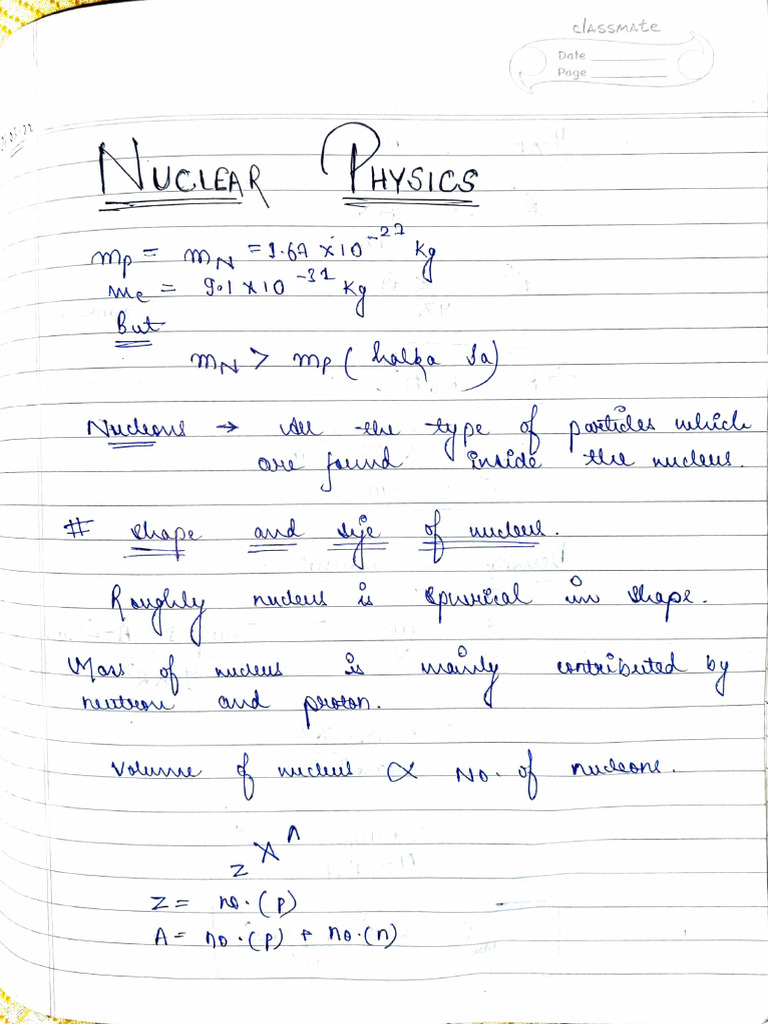 classmate
Date
Page
NUCLEAR PHYSICS
mp = mN = 1.67 × 10⁻²⁷ kg
me = 9.1 × 10⁻³¹ kg
But
mN > mp ( halka sa)
Nucleons → All the type of particles which
are found inside the nucleus.
# shape and size of nucleus.
Roughly nucleus is spherical in shape.
Mass of nucleus is mainly contributed by
neutron and proton.
Volume of nucleus ∝ No. of nucleons.
zXᴬ
Z = no.(p)
A = no.(p) + no.(n)